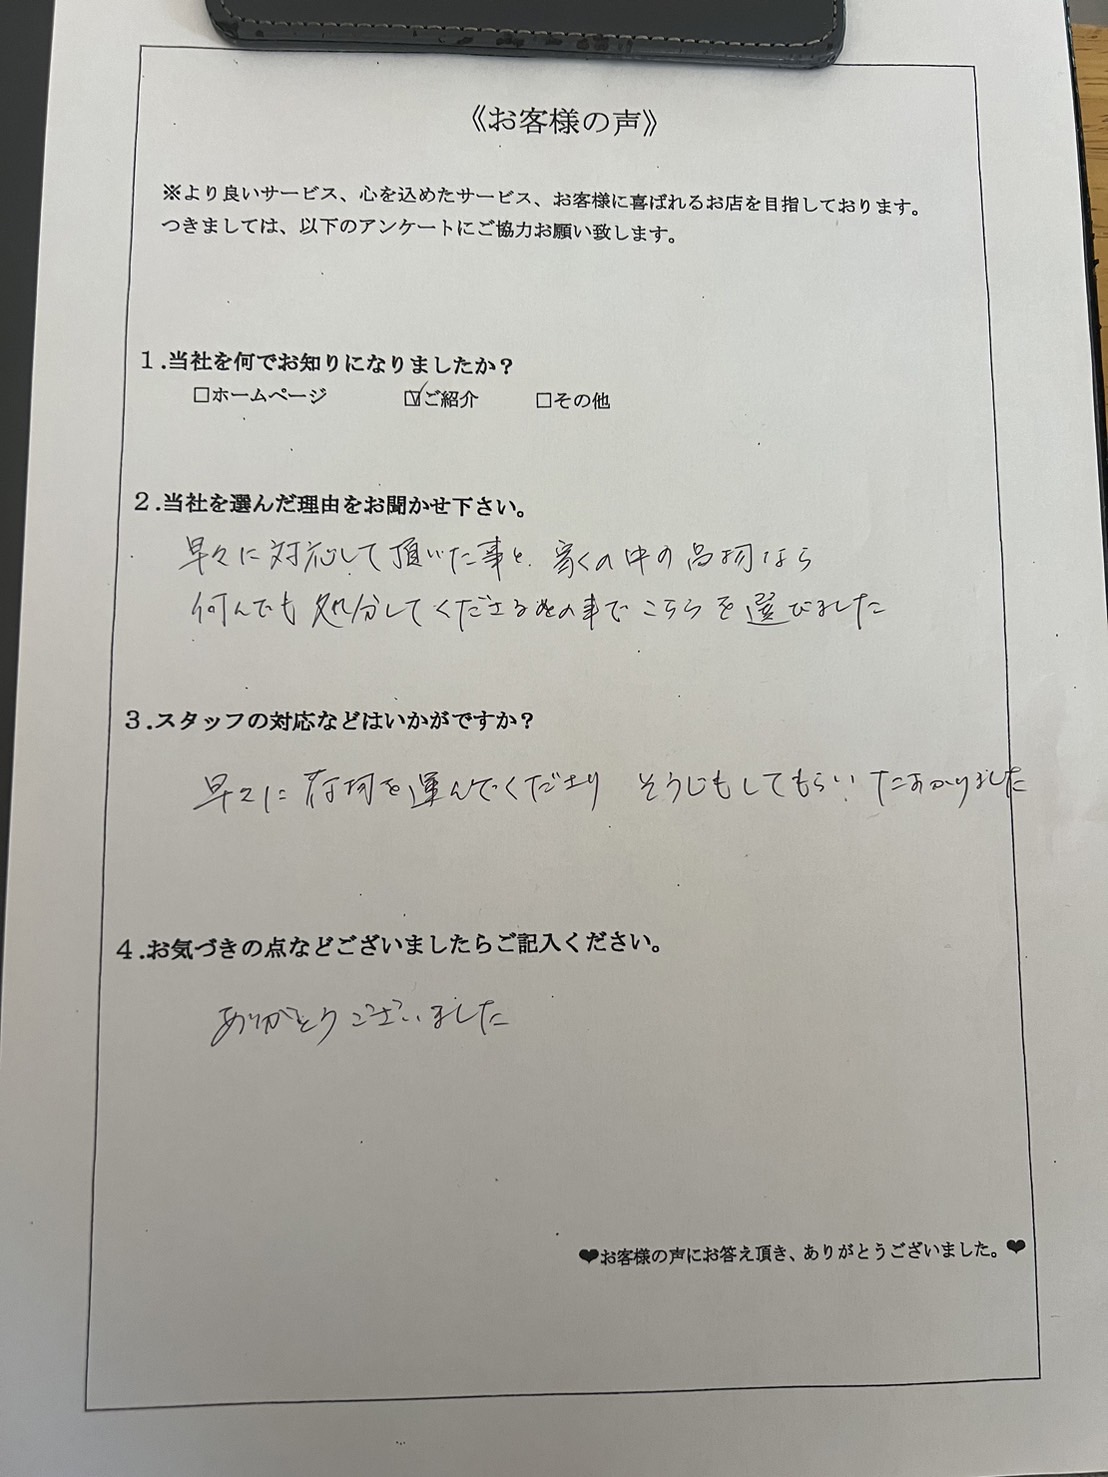 《お客様の声》
※より良いサービス、心を込めたサービス、お客様に喜ばれるお店を目指しております。
つきましては、以下のアンケートにご協力お願い致します。
1.当社を何でお知りになりましたか？
□ホームページ ☑ご紹介 □その他
2.当社を選んだ理由をお聞かせ下さい。
早々に対応して頂いた事と、家の中の品物なら
何んでも処分してくださるとの事でこちらを選びました
3.スタッフの対応などはいかがですか？
早々に荷物を運んでくださり そうじもしてもらい、たすかりました
4.お気づきの点などございましたらご記入ください。
ありがとうございました
❤お客様の声にお答え頂き、ありがとうございました。❤